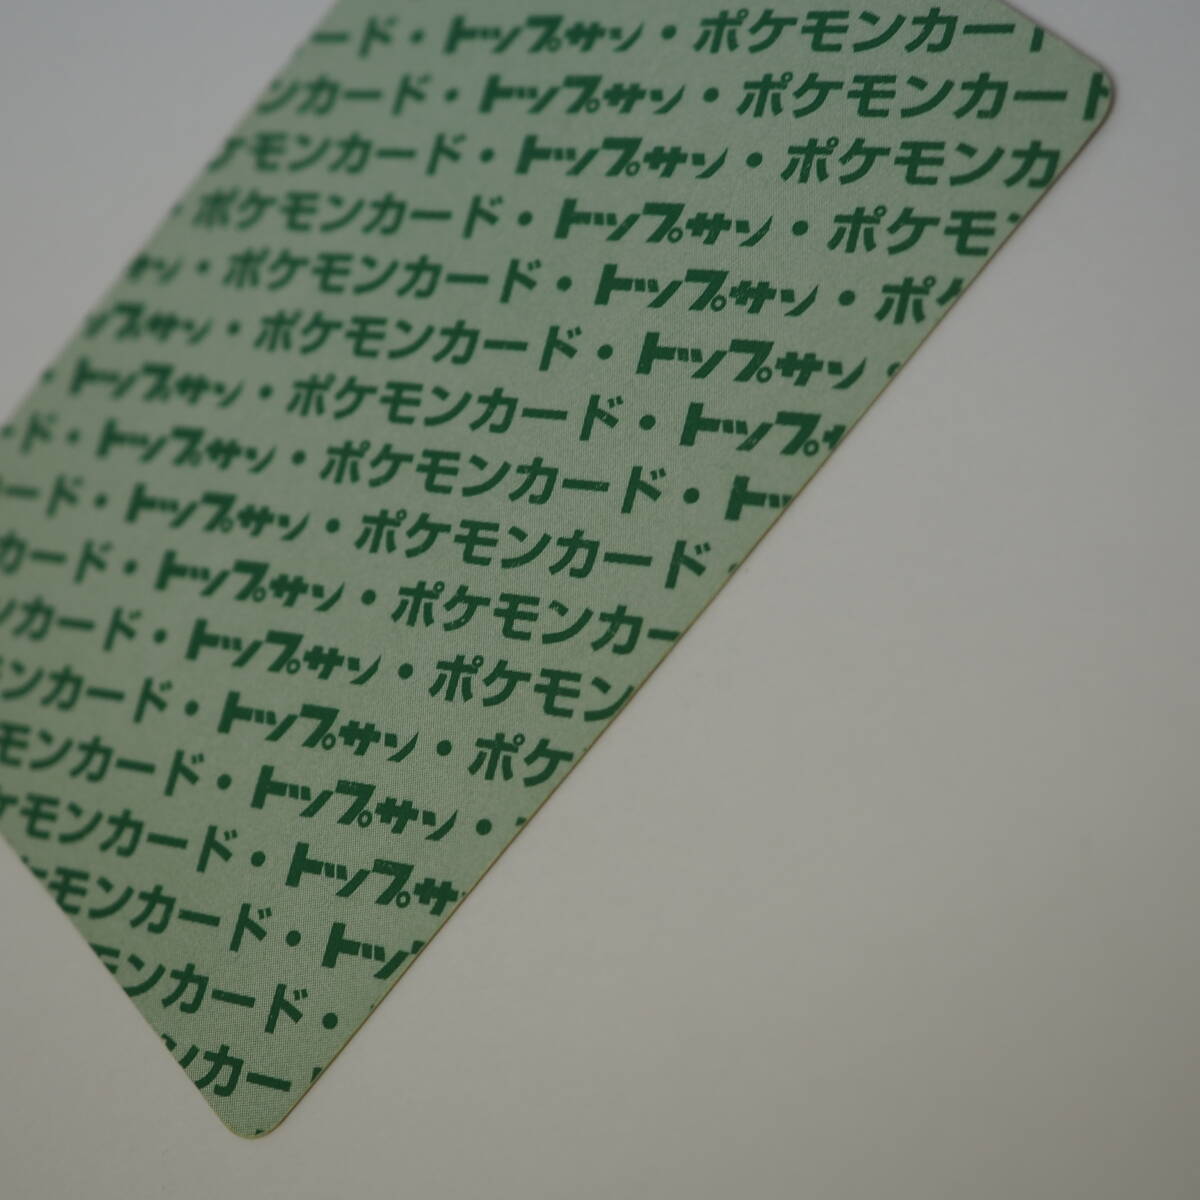 ード・トップサン・ポケモンカード
ンカード・トップサン・ポケモンカード
ケモンカード・トップサン・ポケモンカ
・ポケモンカード・トップサン・ポケモン
サン・ポケモンカード・トップサン・ポケ
プサン・ポケモンカード・トップサン・
・トップサン・ポケモンカード・トップサ
ード・トップサン・ポケモンカード・トッ
カード・トップサン・ポケモンカード・
カード・トップサン・ポケモンカー
ンカード・トップサン・ポケモン
モンカード・トップサン・ポケ
モンカード・トップサン・
ケモンカード・トップサ
ケモンカード・トップ
モンカード・
ンカード